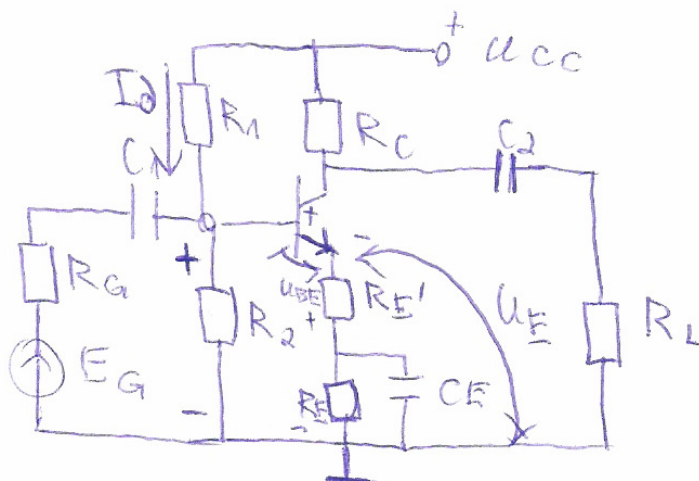 + UCC
ID
R1
RC
C1
C2
+
-
+
RG
R2
UBE
+
RE'
UE
RL
EG
-
RE
-
CE